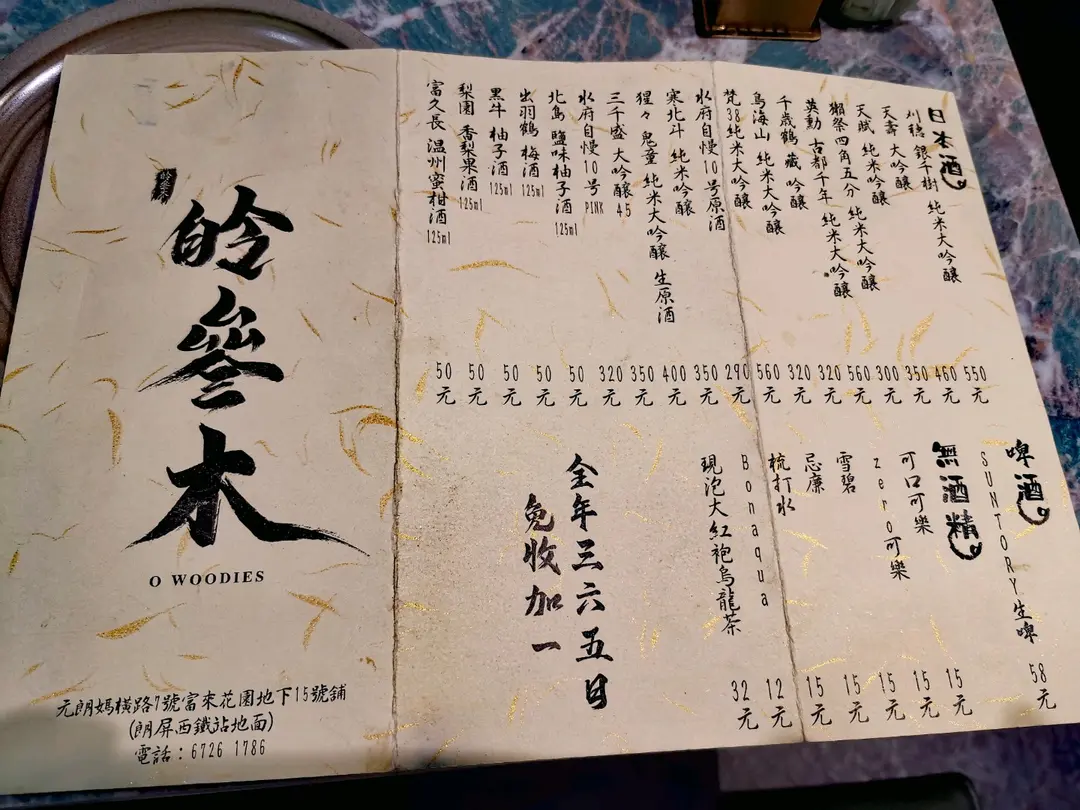 日本酒
刈穗 銀千樹 純米大吟釀 550元
天壽 大吟釀 460元
天賦 純米吟釀 350元
獺祭四角五分 純米大吟釀 300元
英勳 古都千年 純米大吟釀 560元
千歲鶴 藏 吟釀 320元
鳥海山 純米大吟釀 320元
梵38純米大吟釀 560元
水府自慢10号原酒 290元
寒北斗 純米吟釀 350元
猩々 鬼童 純米大吟釀 生原酒 400元
三千盛 大吟釀 45 350元
水府自慢10号 PINK 320元
北島 鹽味柚子酒 125ml 50元
出羽鶴 梅酒 125ml 50元
黑牛 柚子酒 125ml 50元
梨園 香梨果酒 125ml 50元
富久長 温州蜜柑酒 125ml 50元
啤酒
SUNTORY生啤 58元
無酒精
可口可樂 15元
zero可樂 15元
雪碧 15元
忌廉 15元
梳打水 15元
Bonaqua 12元
現泡大紅袍烏龍茶 32元
全年三六五日
免收加一
皊叄木
O WOODIES
元朗媽橫路7號富來花園地下15號舖
(朗屏西鐵站地面)
電話：6726 1786